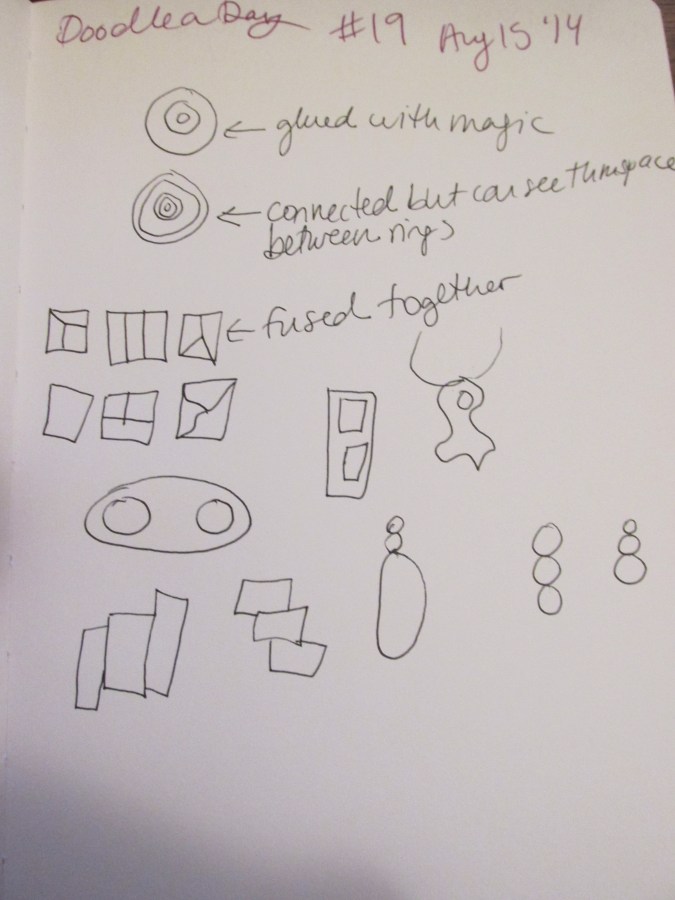 Doodle a Day #19 Aug 15 '14
glued with magic
connected but can see thru space
between rings
fused together